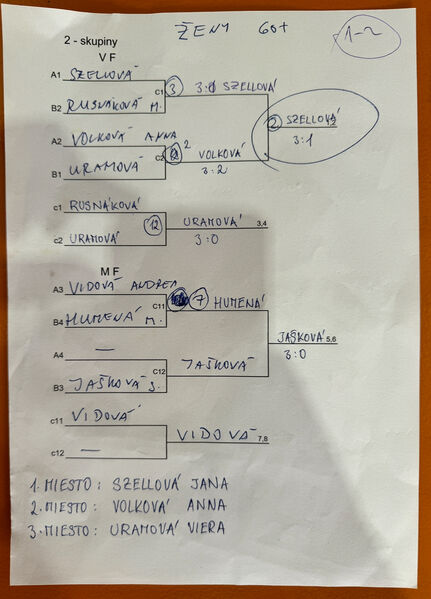 ŽENY 60+
1-2
2 - skupiny
V F
A1 SZELLOVÁ
C1 3 3:0 SZELLOVÁ
B2 RUSNÁKOVÁ M.
2 SZELLOVÁ
3:1
A2 VOLKOVÁ ANNA
C2 2 VOLKOVÁ
3:2
B1 URAMOVÁ
c1 RUSNÁKOVÁ
12 URAMOVÁ 3,4
3:0
c2 URAMOVÁ
M F
A3 VIDOVÁ ANDREA
C11 7 HUMENÁ
B4 HUMENÁ M.
JAŠKOVÁ 5,6
3:0
A4 —
C12 JAŠKOVÁ
B3 JAŠKOVÁ J.
c11 VIDOVÁ
VIDOVÁ 7,8
c12 —
1. MIESTO: SZELLOVÁ JANA
2. MIESTO: VOLKOVÁ ANNA
3. MIESTO: URAMOVÁ VIERA